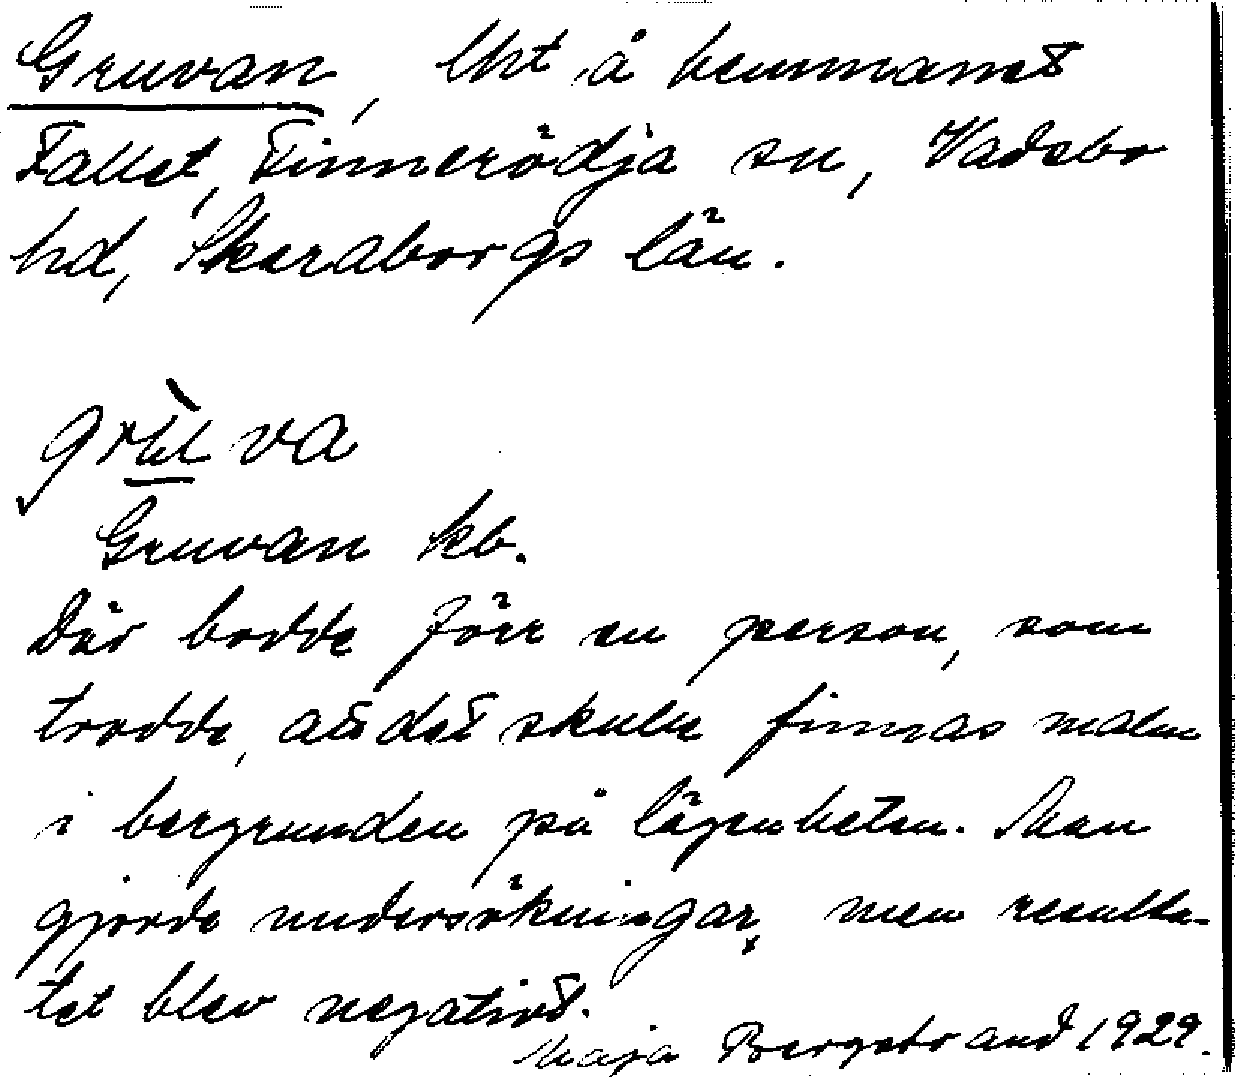 Gruvan, lht å hemmanet
Fallet, Finnerödja sn, Vadsbo
hd, Skaraborgs län.
va
Gruvan kb.
Där bodde förr en person, som
trodde, att det skulle finnas malm
i berggrunden på lägenheten. Man
gjorde undersökningar, men resulta-
tet blev negativt.
Maja Bergstrand 1929.